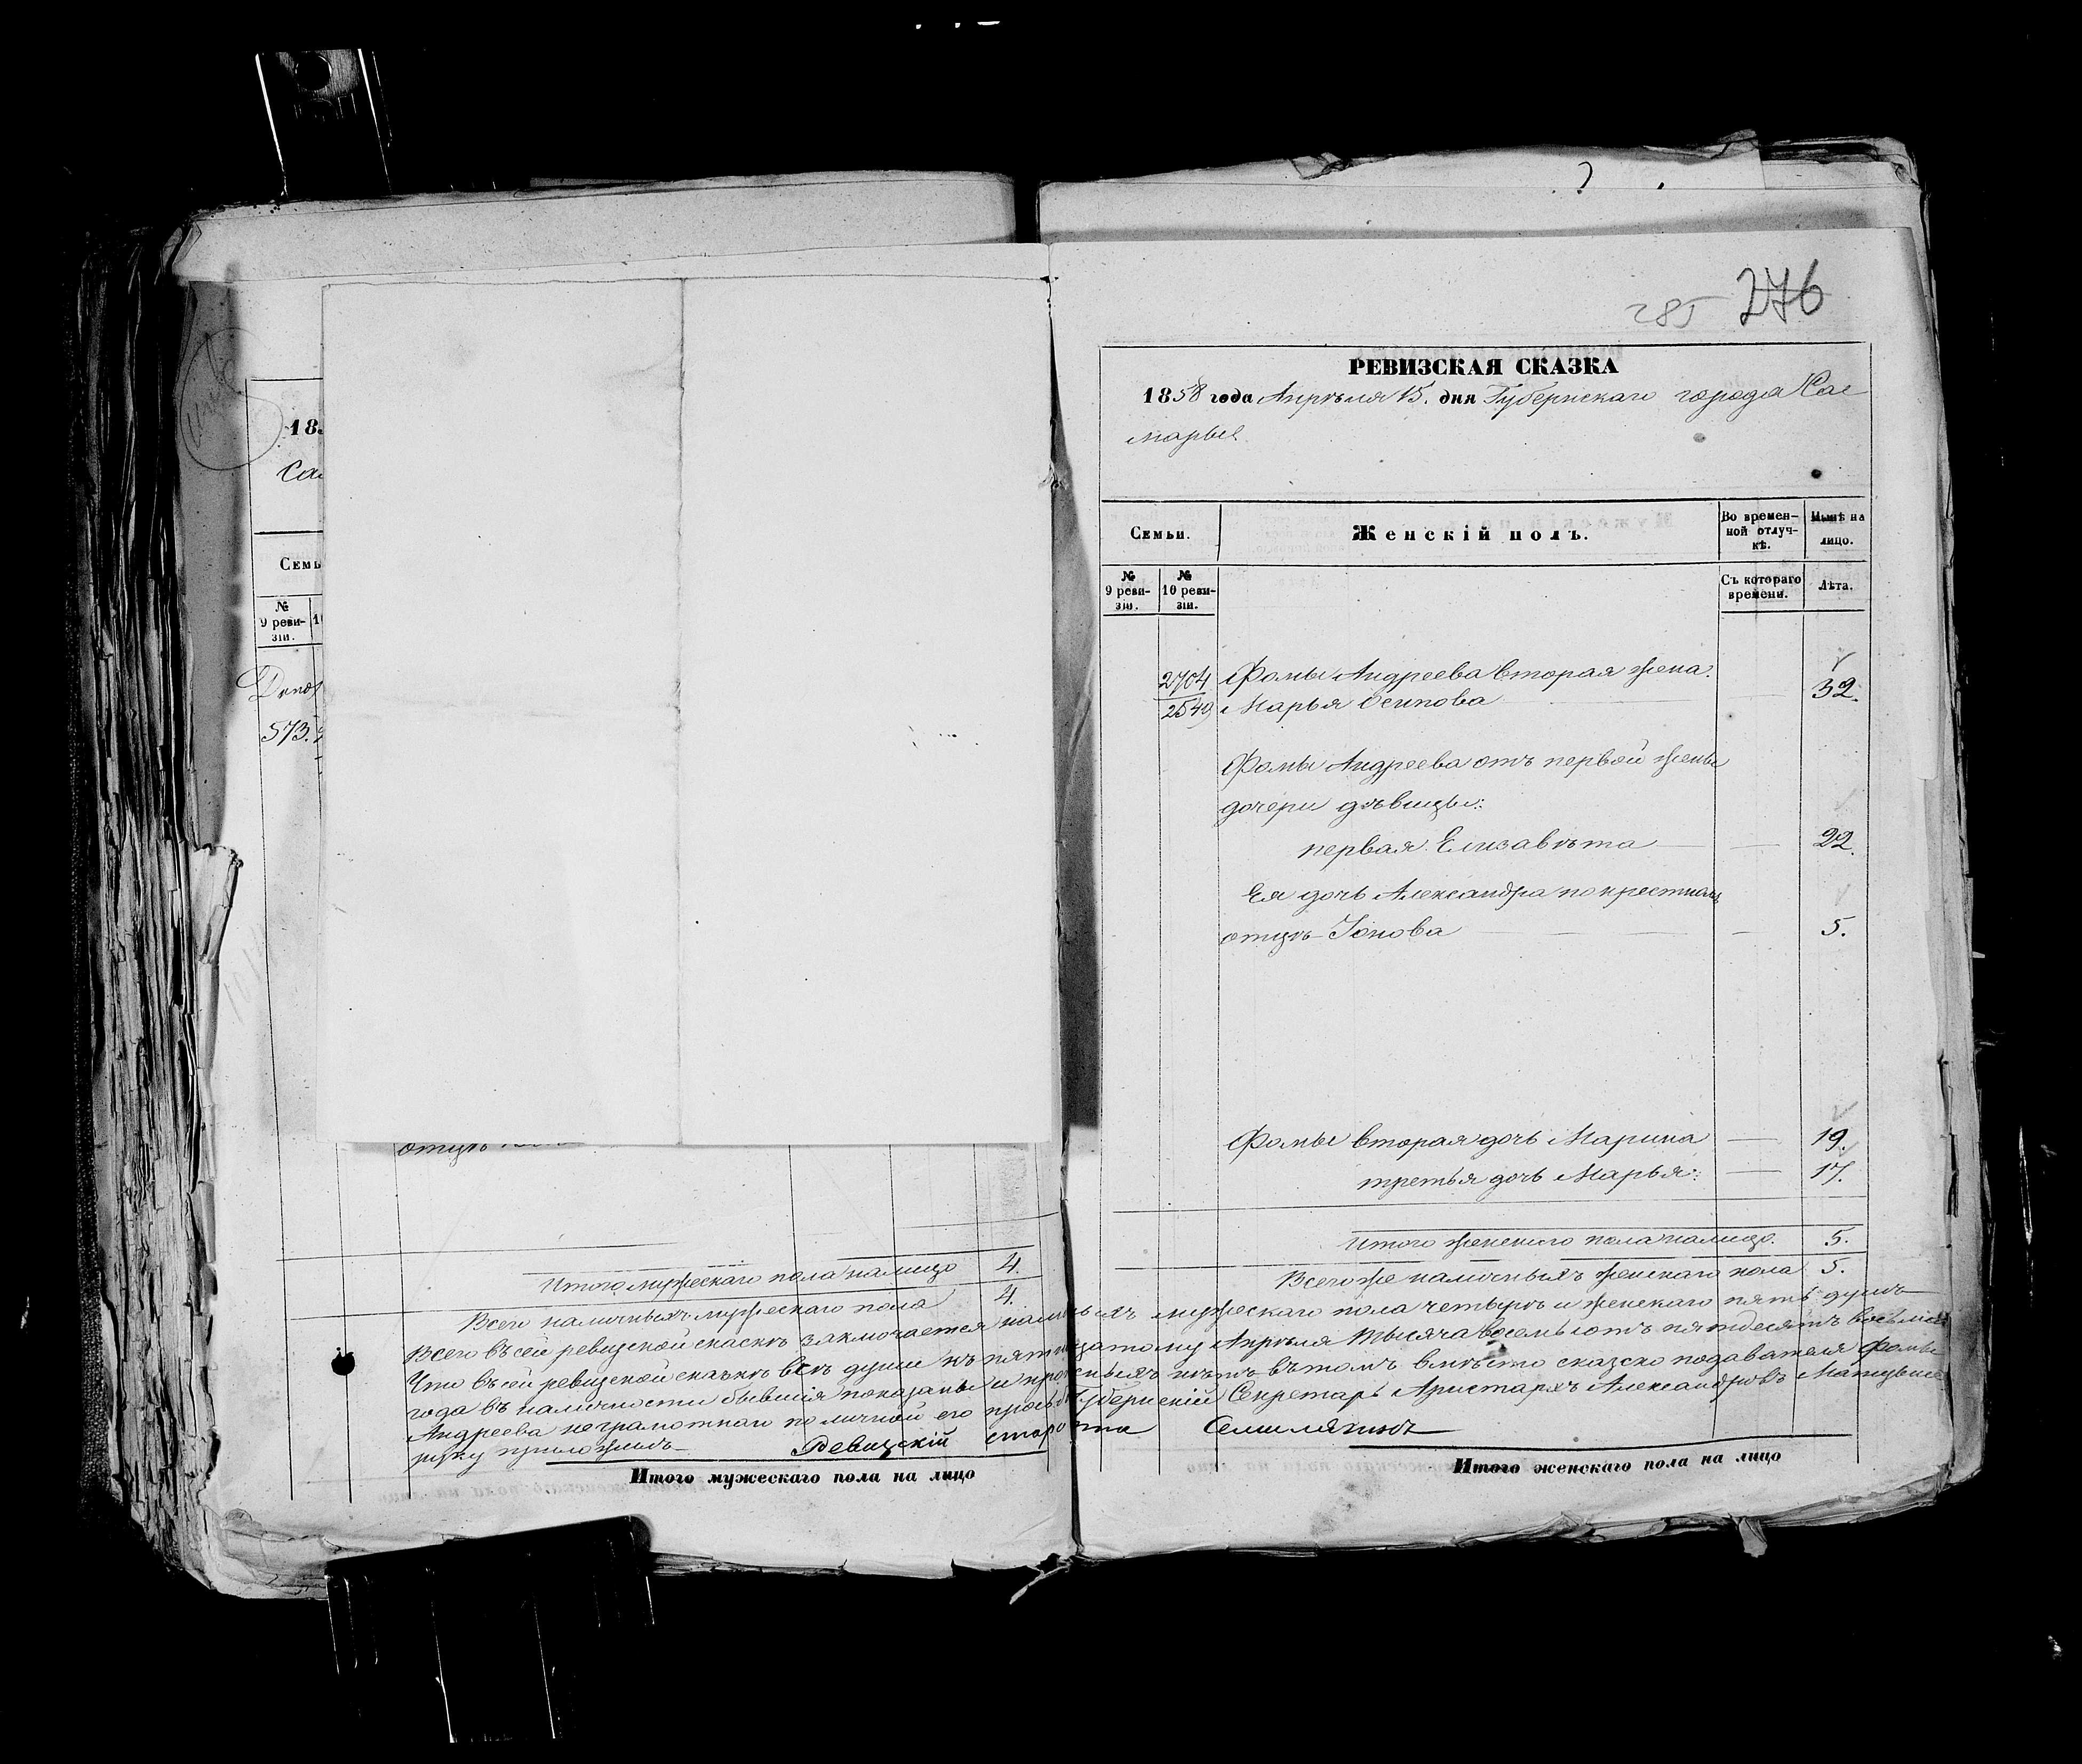 285 276
РЕВИЗСКАЯ СКАЗКА
1858 года Апрѣля 15. дня Губернскаго города Са
мары
Семьи.
Женскій полъ.
Во времен-
ной отлуч-
кѣ.
Нынѣ на
лицо.
№
9 реви-
зіи.
№
10 реви-
зіи.
Съ котораго
времени.
Лѣта.
2704 Фомы Андреева вторая жена
2549 Марья Осипова 32.
Фомы Андреева отъ первой жены
дочери дѣвицы:
первая Елизавѣта 22.
Ея дочь Александра по крестномъ
отцѣ Іонова 5.
Фомы вторая дочь Марина 19.
третья дочь Марья: 17.
Итого женскаго пола налицо. 5.
Всего же наличныхъ женскаго пола 5.
18
Са
Семь
№
9 реви-
зіи.
573.
отцѣ
Итого мужескаго пола налицо 4.
Всего наличныхъ мужескаго пола 4.
Всего въ сей ревизской сказкѣ заключается наличныхъ мужескаго пола четыре и женскаго пять душъ
Что въ сей ревизской сказкѣ всѣ души къ пятнадцатому Апрѣля тысяча восемьсотъ пятьдесятъ восьмаго
года въ наличности бывшія показаны и прописныхъ нѣтъ въ томъ вмѣсто сказко подавателя Фомы
Андреева неграмотнаго по личной его прозьбѣ Губернскій Секретарь Аристархъ Александровъ
руку приложилъ Ревизскій староста
Итого мужескаго пола на лицо
Итого женскаго пола на лицо